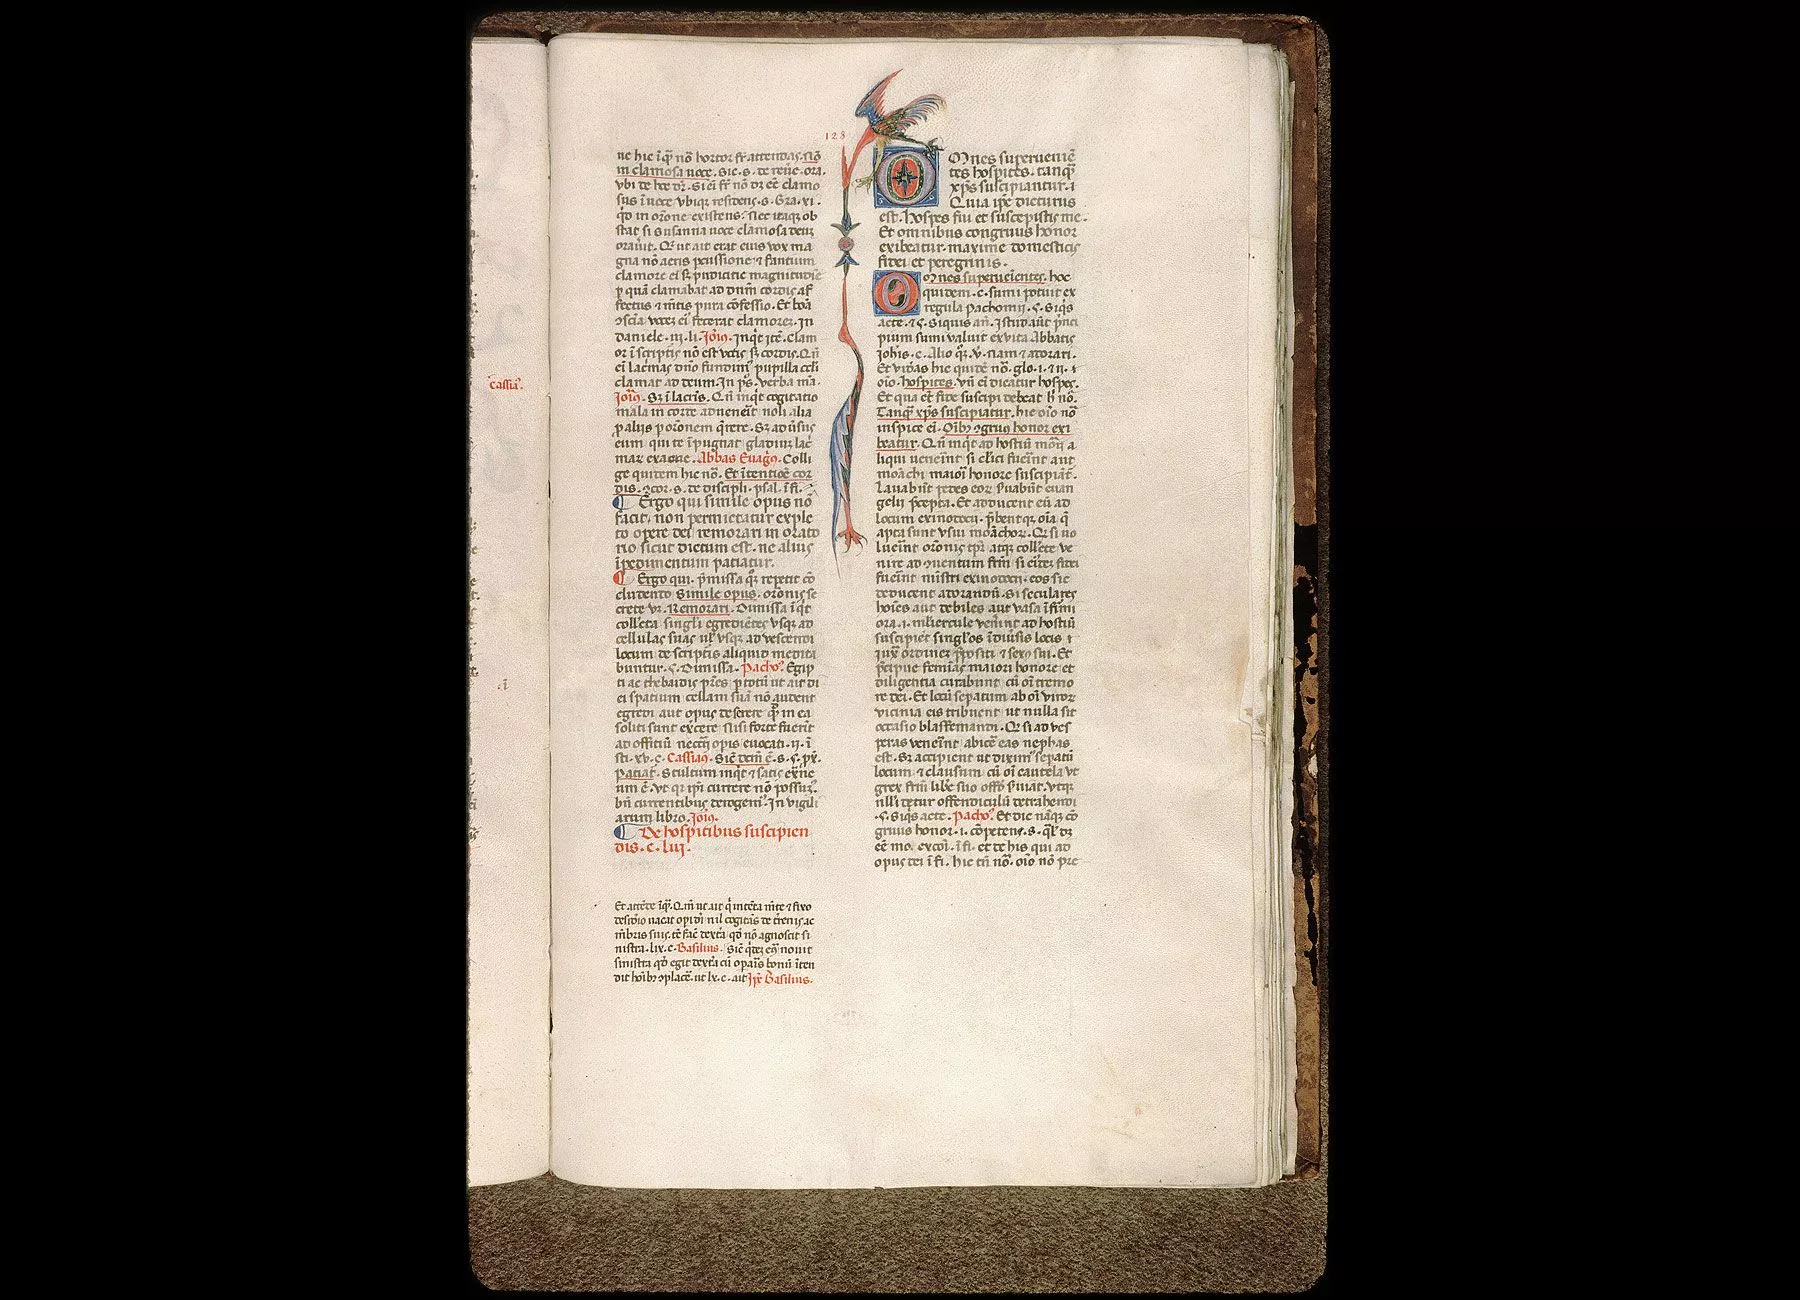 cassia⁹.
123
ne hic iq̄ nō hortor fr̄ attendas. Nō
in clamosa uoce. sic. s. de reūe. ora.
vbi de hoc dr̄. Si ei fr̄ nō dz eē clamo
sus i uoce vbiq̄ residens. s. Gra. xi.
qd̄ in orōne existens. Nec itaq̄ ob
stat si susanna uoce clamosa deuz
orauit. Qz ut ait erat eius vox ma
gna nō aeris pcussione ⁊ fantium
clamore ei sz pudicitie magnitudīe
p quā clamabat ad dnm̄ cordis af
fectus ⁊ mētis pura cōfessio. Et bōa
ɔscīa uoces ei fecerat clamores. In
daniele. iii. li. Jōiu⁹. Inqt itē. Clam
or i scriptis nō est uocis sz cordis. Qn̄
ei lacrimas dn̄o fundim⁹ pupilla cl̄i
clamat ad deum. In ps̄. verba m̄a.
Jōiu⁹. Sz i lacris. Qn̄ inqt cogitatio
mala in corde aduenerit noli alia
p alijs p orōnem qrere. Sz aduersus
eum qui te ipugnat gladium lac
mar exacue. Abbas Euagr⁹. Colli
ge quidem hic nō. Et itentiōe cor
dis. ɔcor. s. de discipli. psal. i fi.
Ergo qui simile opus nō
facit. non permictatur exple
to opere dei remorari in orato
rio sicut dictum est. ne alius
ipedimentum patiatur.
Ergo qui. pmissa qz repetit cō
cludendo Simile opus. orōnis se
crete ur. Remorari. Dimissa iqt
coll̄eta singl̄i egredietes usqz ad
cellulas suas ul̄ usqz ad vescendi
locum de scriptis aliquid medita
buntur. ç. Dimissa. Pacho⁹. Egip
ti ac thebaidis p̄res p totū ut ait di
ei spatium cellam suā nō audent
egredi aut opus deserere qd̄ in ea
soliti sunt excere nisi forte fuerīt
ad offitiū necc̄ri opis euocati. ii. i
sti. xv. c. Cassia⁹. Sic̄ dctm̄ ē. s. ç. px̄.
Patiat̄. Stultum inqt ⁊ satis exn̄e
um ē. Vt qr ipi currere nō possum⁹.
bn̄ currentibus derogem⁹. In vigili
arum libro. Jōiu⁹.
De hospitibus suscipien
dis. c. liii.
Et attēde iq̄. Qm̄ ut ait q̄ intēta mēte ⁊ fixo
desid̄io uacat opi dī nil cogitās de t̄renis ac
mēbris suis. te fac̄ dextā qd̄ nō agnoscit si
nistra. lix. c. Basilius. Sic̄ qdez eq̄ nouit
sinistra qd̄ egit dextra cū opāns bonū iten
dit hoīb⁹ ɔplacē. ut lx. c. ait Ipē Basilius.
Omnes superueniē
tes hospites. tanq̄
xp̄s suscipiantur. i
Quia ip̄e dicturus
est. hospes fui et suscepistis me.
Et omnibus congruus honor
exibeatur. maxime domesticis
fidei et peregrinis.
Omnes superueīentes. hoc
quidem. c. sumi potuit ex
regula Pachomij. ç. Siq̄s
acc̄e. ⁊ ç. Siquis an̄. Istud aūt p̄nci
pium sumi ualuit ex uita Abbatis
Joh̄is. c. Alio qz. v. nam ⁊ adorari.
Et uidas hic quidē nō. glo. i. ⁊ ii. i
oīo. hospites. Vn̄ ei dicatur hospes.
Et qua eē fide suscipi debeat h nō.
Tanq̄ xp̄s suscipiatur. hic oīo nō
inspice ei. Oībus ɔgruus honor exi
beatur. Qn̄ inqt ad hostiū mōn̄ a
liqui ueneīnt si cl̄ici fueīnt aut
moāchi maiori honore suscipiāt̄.
Lauabūt pedes eor̄ s̄uabūt euan
gelii p̄cepta. Et adducent eū ad
locum exinodocii. p̄bentqz oīa q̄
apta sunt usui moāchor̄. Qz si uo
lueīnt orōnis tp̄r atqz collecte ve
nire ad ɔuentum frm̄ si eiusdē fidei
fueīnt mīstri exinodocii. eos sic
deducent adorandū. Si seculares
hoīes aut debiles aut vasa ifīmi
ora. i. mlīercule ueneīnt ad hostiū
suscipiēt singl̄os idiūsis locis ⁊
iux̄ ordinez p̄positi ⁊ sexus sui. Et
p̄cipue femīas maiori honore et
diligentia curabunt cū oī timo
re dei. Et locū sepatum ab oī viror̄
vicinia eis tribuent ut nulla sit
occasio blasfemandi. Qz si ad ves
peras veneīnt abicē eas nephas
est. Sz accipient ut dixim⁹ sepatū
locum ⁊ clausum cū oī cautela ut
grex frm̄ libē suo offō s̄uiat. Utqz
nlli detur offendiculū detrahendi
ç. Siq̄s acc̄e. Pacho⁹. Et dic nāqz cō
gruus honor. i. cōpetens. s. ql̄r dz
eē mo. excoī. i fi. et de his qui ad
opus dei i fi. hic tn̄ nō. oīo nō pre